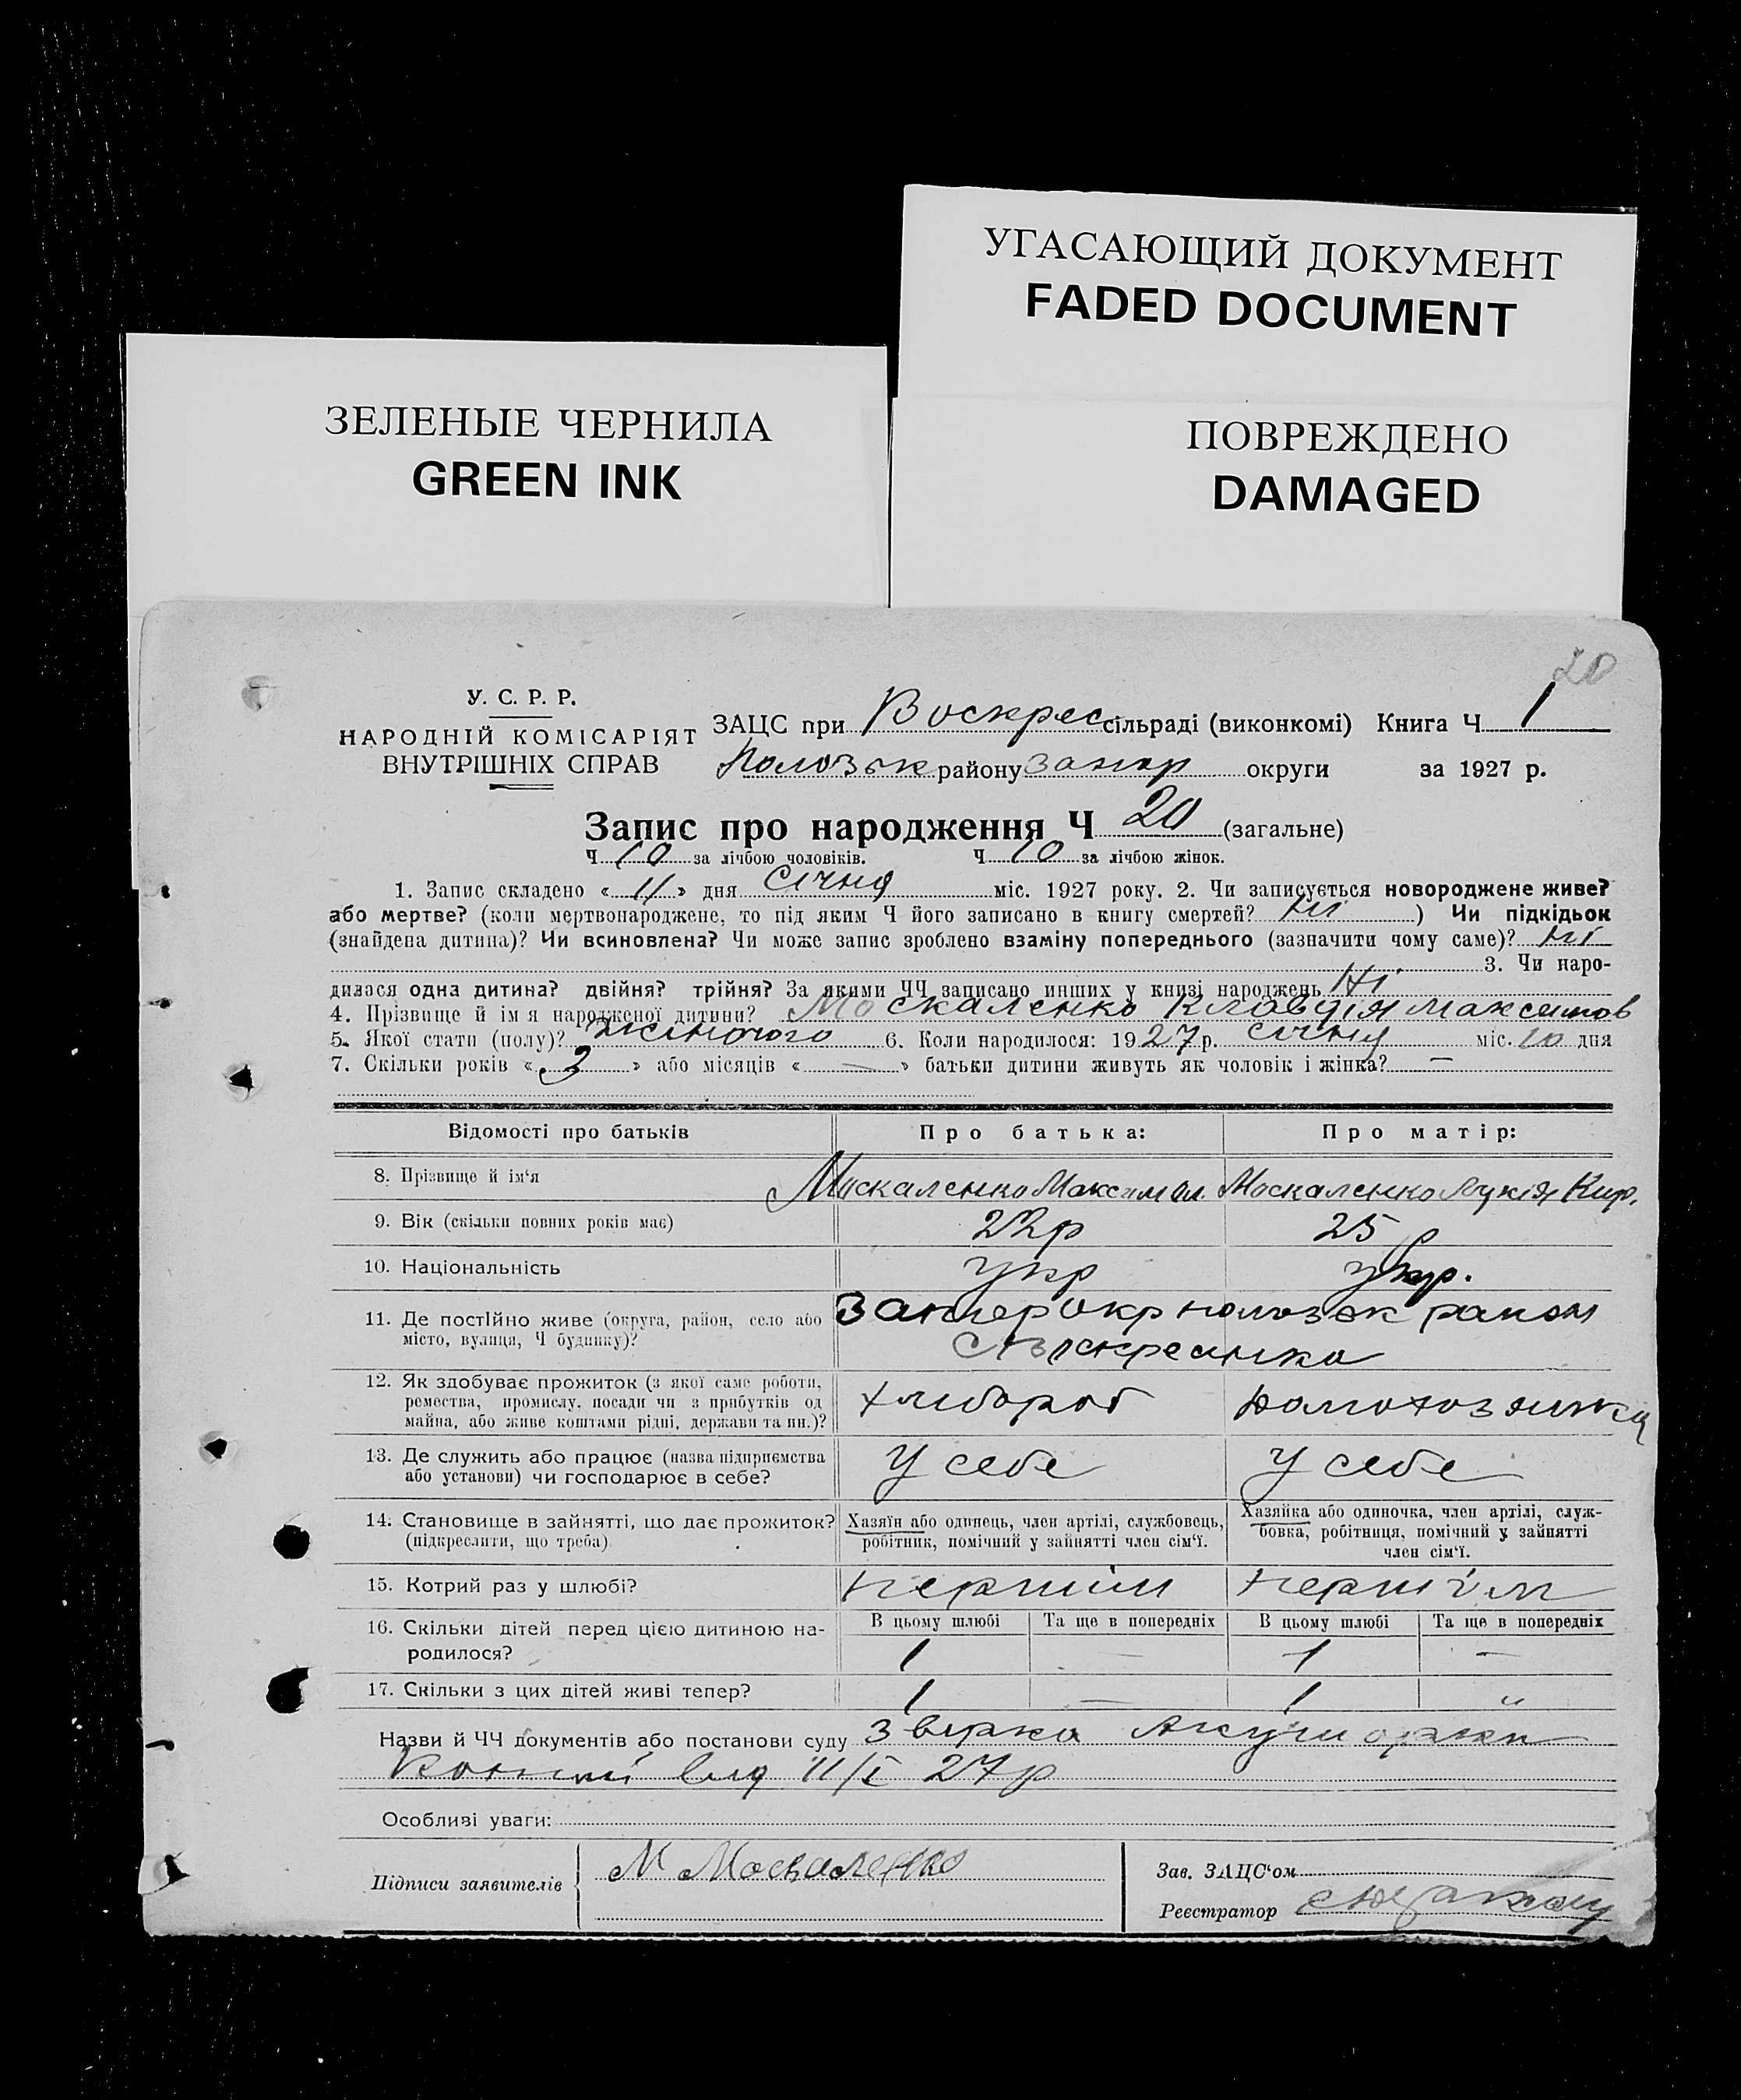 УГАСАЮЩИЙ ДОКУМЕНТ
FADED DOCUMENT
ЗЕЛЕНЫЕ ЧЕРНИЛА
GREEN INK
ПОВРЕЖДЕНО
DAMAGED
20
У. С. Р. Р.
НАРОДНІЙ КОМІСАРІЯТ
ВНУТРІШНІХ СПРАВ
ЗАЦС при Воскрес сільраді (виконкомі) Книга Ч 1
Полозьк району Запор округи за 1927 р.
Запис про народження Ч 20 (загальне)
Ч 10 за лічбою чоловіків. Ч 10 за лічбою жінок.
1. Запис складено « 11 » дня Січня міс. 1927 року. 2. Чи записується новороджене живе?
або мертве? (коли мертвонароджене, то під яким Ч його записано в книгу смертей? Ні ) Чи підкідьок
(знайдена дитина)? Чи всиновлена? Чи може запис зроблено взаміну попереднього (зазначити чому саме)? Ні
3. Чи наро-
дилася одна дитина? двійня? трійня? За якими ЧЧ записано инших у книзі народжень Ні
4. Прізвище й ім я народженої дитини? Москаленко Клавдія Максимов
5. Якої стати (полу)? жіночого 6. Коли народилося: 1927 р. січня міс. 10 дня
7. Скільки років « 3 » або місяців « — » батьки дитини живуть як чоловік і жінка? —
Відомості про батьків Про батька: Про матір:
8. Прізвище й ім‘я Москаленко Максим Ол. Москаленко Лукія Кир.
9. Вік (скільки повних років має) 22р 25 р
10. Національність укр укр.
11. Де постійно живе (округа, район, село або
місто, вулиця, Ч будинку)?
Запор окр полозьк район
12. Як здобуває прожиток (з якої саме роботи,
ремества, промислу, посади чи з прибутків од
майна, або живе коштами рідні, держави та ин.)?
хлібороб домохозяйка
13. Де служить або працює (назва підприємства
або установи) чи господарює в себе?
У себе У себе
14. Становище в зайнятті, що дає прожиток?
(підкреслити, що треба).
Хазяїн або одинець, член артілі, службовець,
робітник, помічний у зайнятті член сім‘ї.
Хазяйка або одиночка, член артілі, служ-
бовка, робітниця, помічний у зайнятті
член сім‘ї.
15. Котрий раз у шлюбі? першим першім
16. Скільки дітей перед цією дитиною на-
родилося?
В цьому шлюбі Та ще в попередніх В цьому шлюбі Та ще в попередніх
1 — 1 —
17. Скільки з цих дітей живі тепер? 1 — 1 "
Назви й ЧЧ документів або постанови суду
від 11/I 27р
Особливі уваги:
Підписи заявителів М Москаленко
Зав. ЗАЦС‘ом
Реєстратор